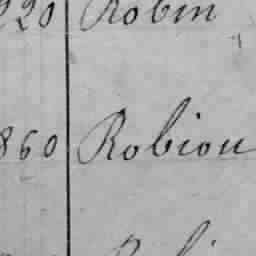 220 Robin
860 Robiou